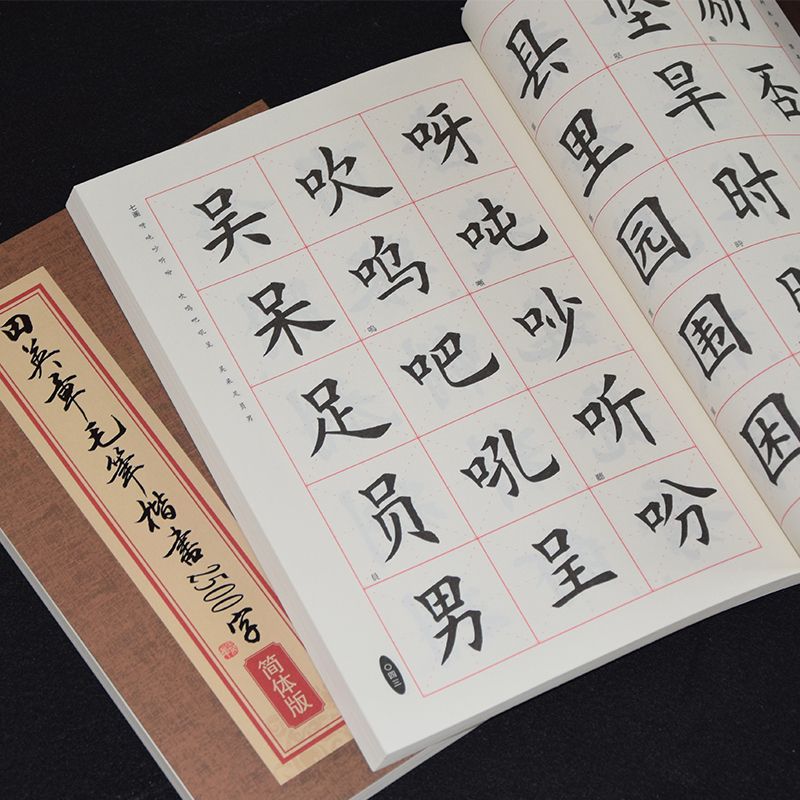 田英章毛筆楷書2500字
简体版
励否
坚旱时
時
县里园围困
呀吨吵听吩
噸
聽
吹呜吧吼呈
嗚
吴呆足员男
員
七画 呀吨吵听吩 吹呜吧吼呈 吴呆足员男
〇四三